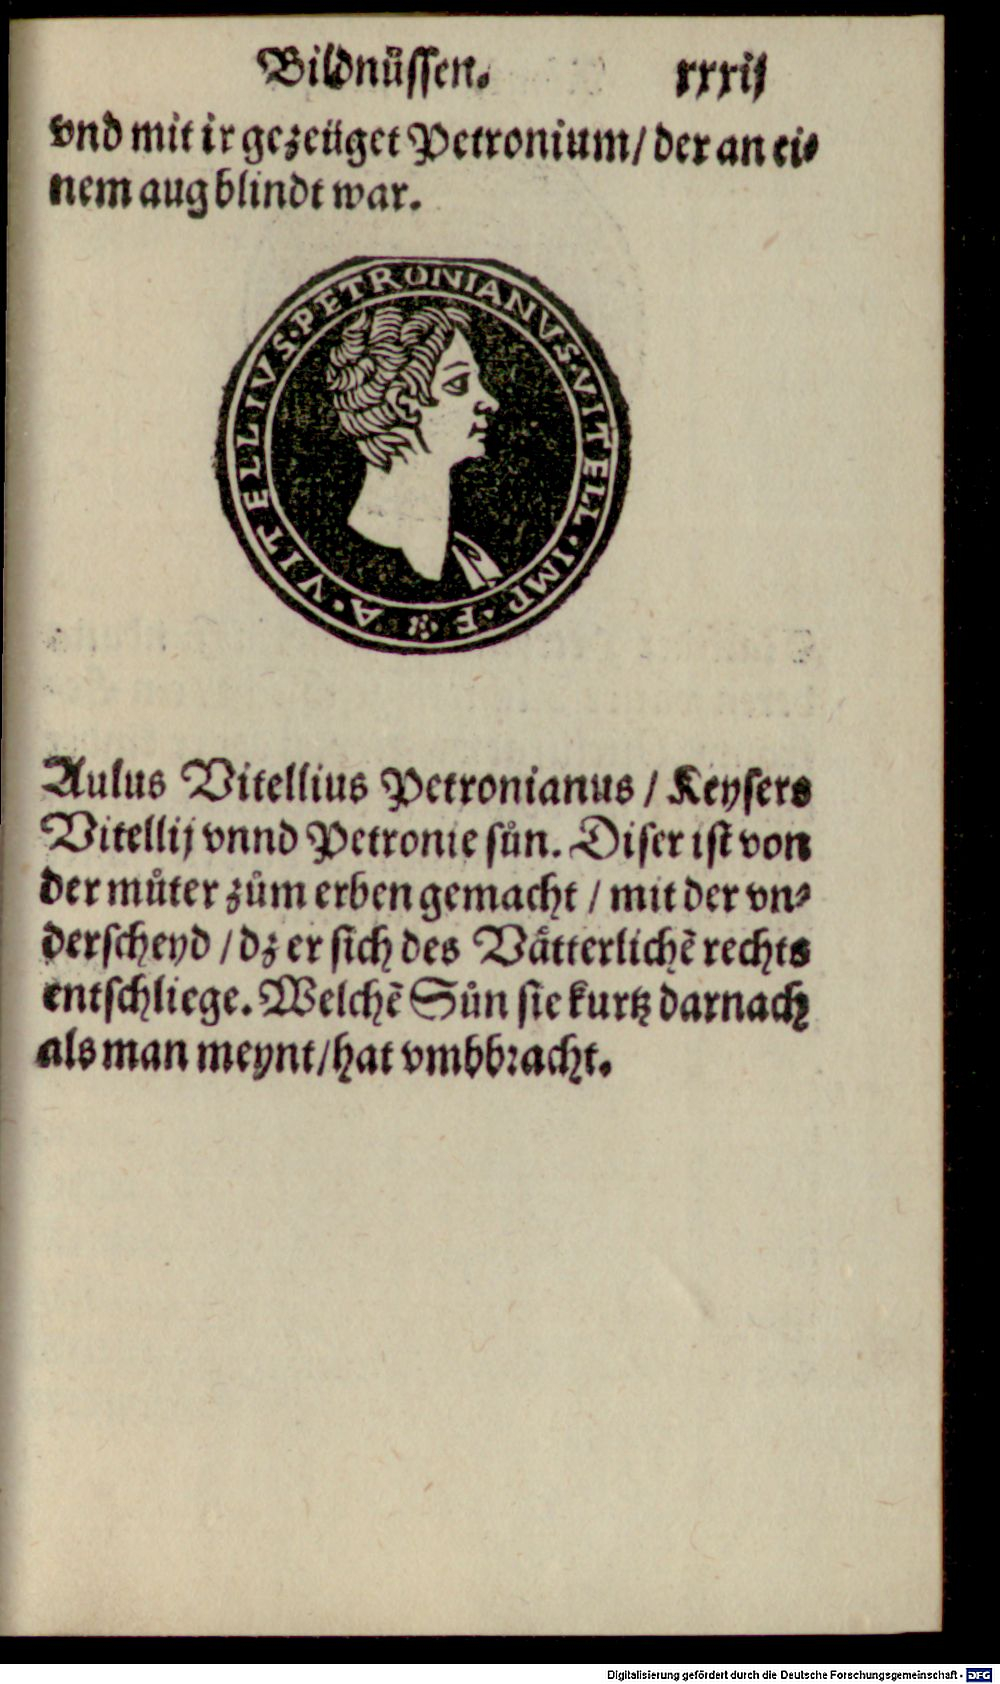 Bildnůssen. xxxij
vnd mit ir gezeüget Petronium/ der an ei⸗
nem aug blindt war.
A · VITELLIVS · PETRONIANVS · VITELL · IMP · F
Aulus Vitellius Petronianus / Keysers
Vitellij vnnd Petronie sůn. Diser ist von
der můter zům erben gemacht / mit der vn⸗
derscheyd / dz er sich des Vätterlichē rechts
entschliege. Welchē Sůn sie kurtz darnach
als man meynt/hat vmbbracht.
Digitalisierung gefördert durch die Deutsche Forschungsgemeinschaft - DFG